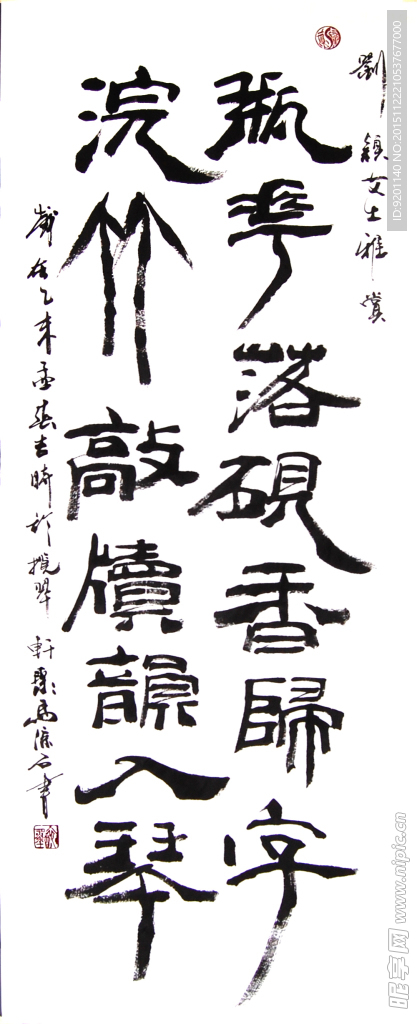 劉穎女士雅賞
瓶花落硯香歸字
浣竹敲牘韻入琴
歲在乙未孟春吉時於攬翠軒 石書
ID:9201140 NO:20151122210537677000
昵享网 www.nipic.cn